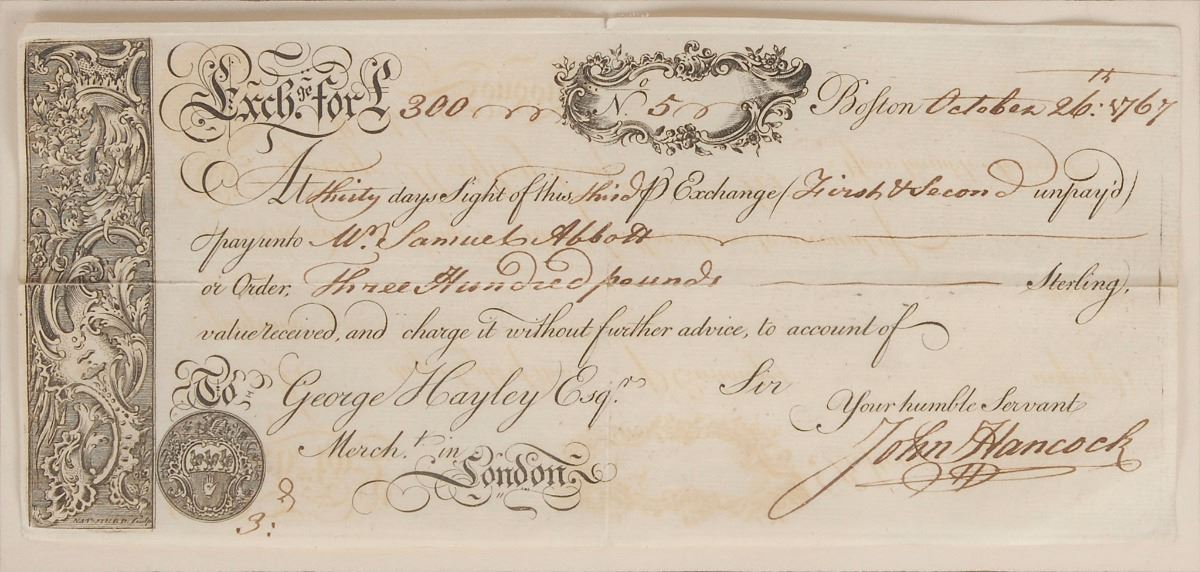 Exch.ge for £ 300 No. 5 Boston October 26.th 1767
At thirty days Sight of this third P Exchange (First & Second unpay'd)
pay unto Mr. Samuel Abbott
or Order, Three Hundred pounds Sterling,
value received, and charge it without further advice, to account of
To George Hayley Esqr. Sir
Your humble Servant
Mercht. in London John Hancock
3: